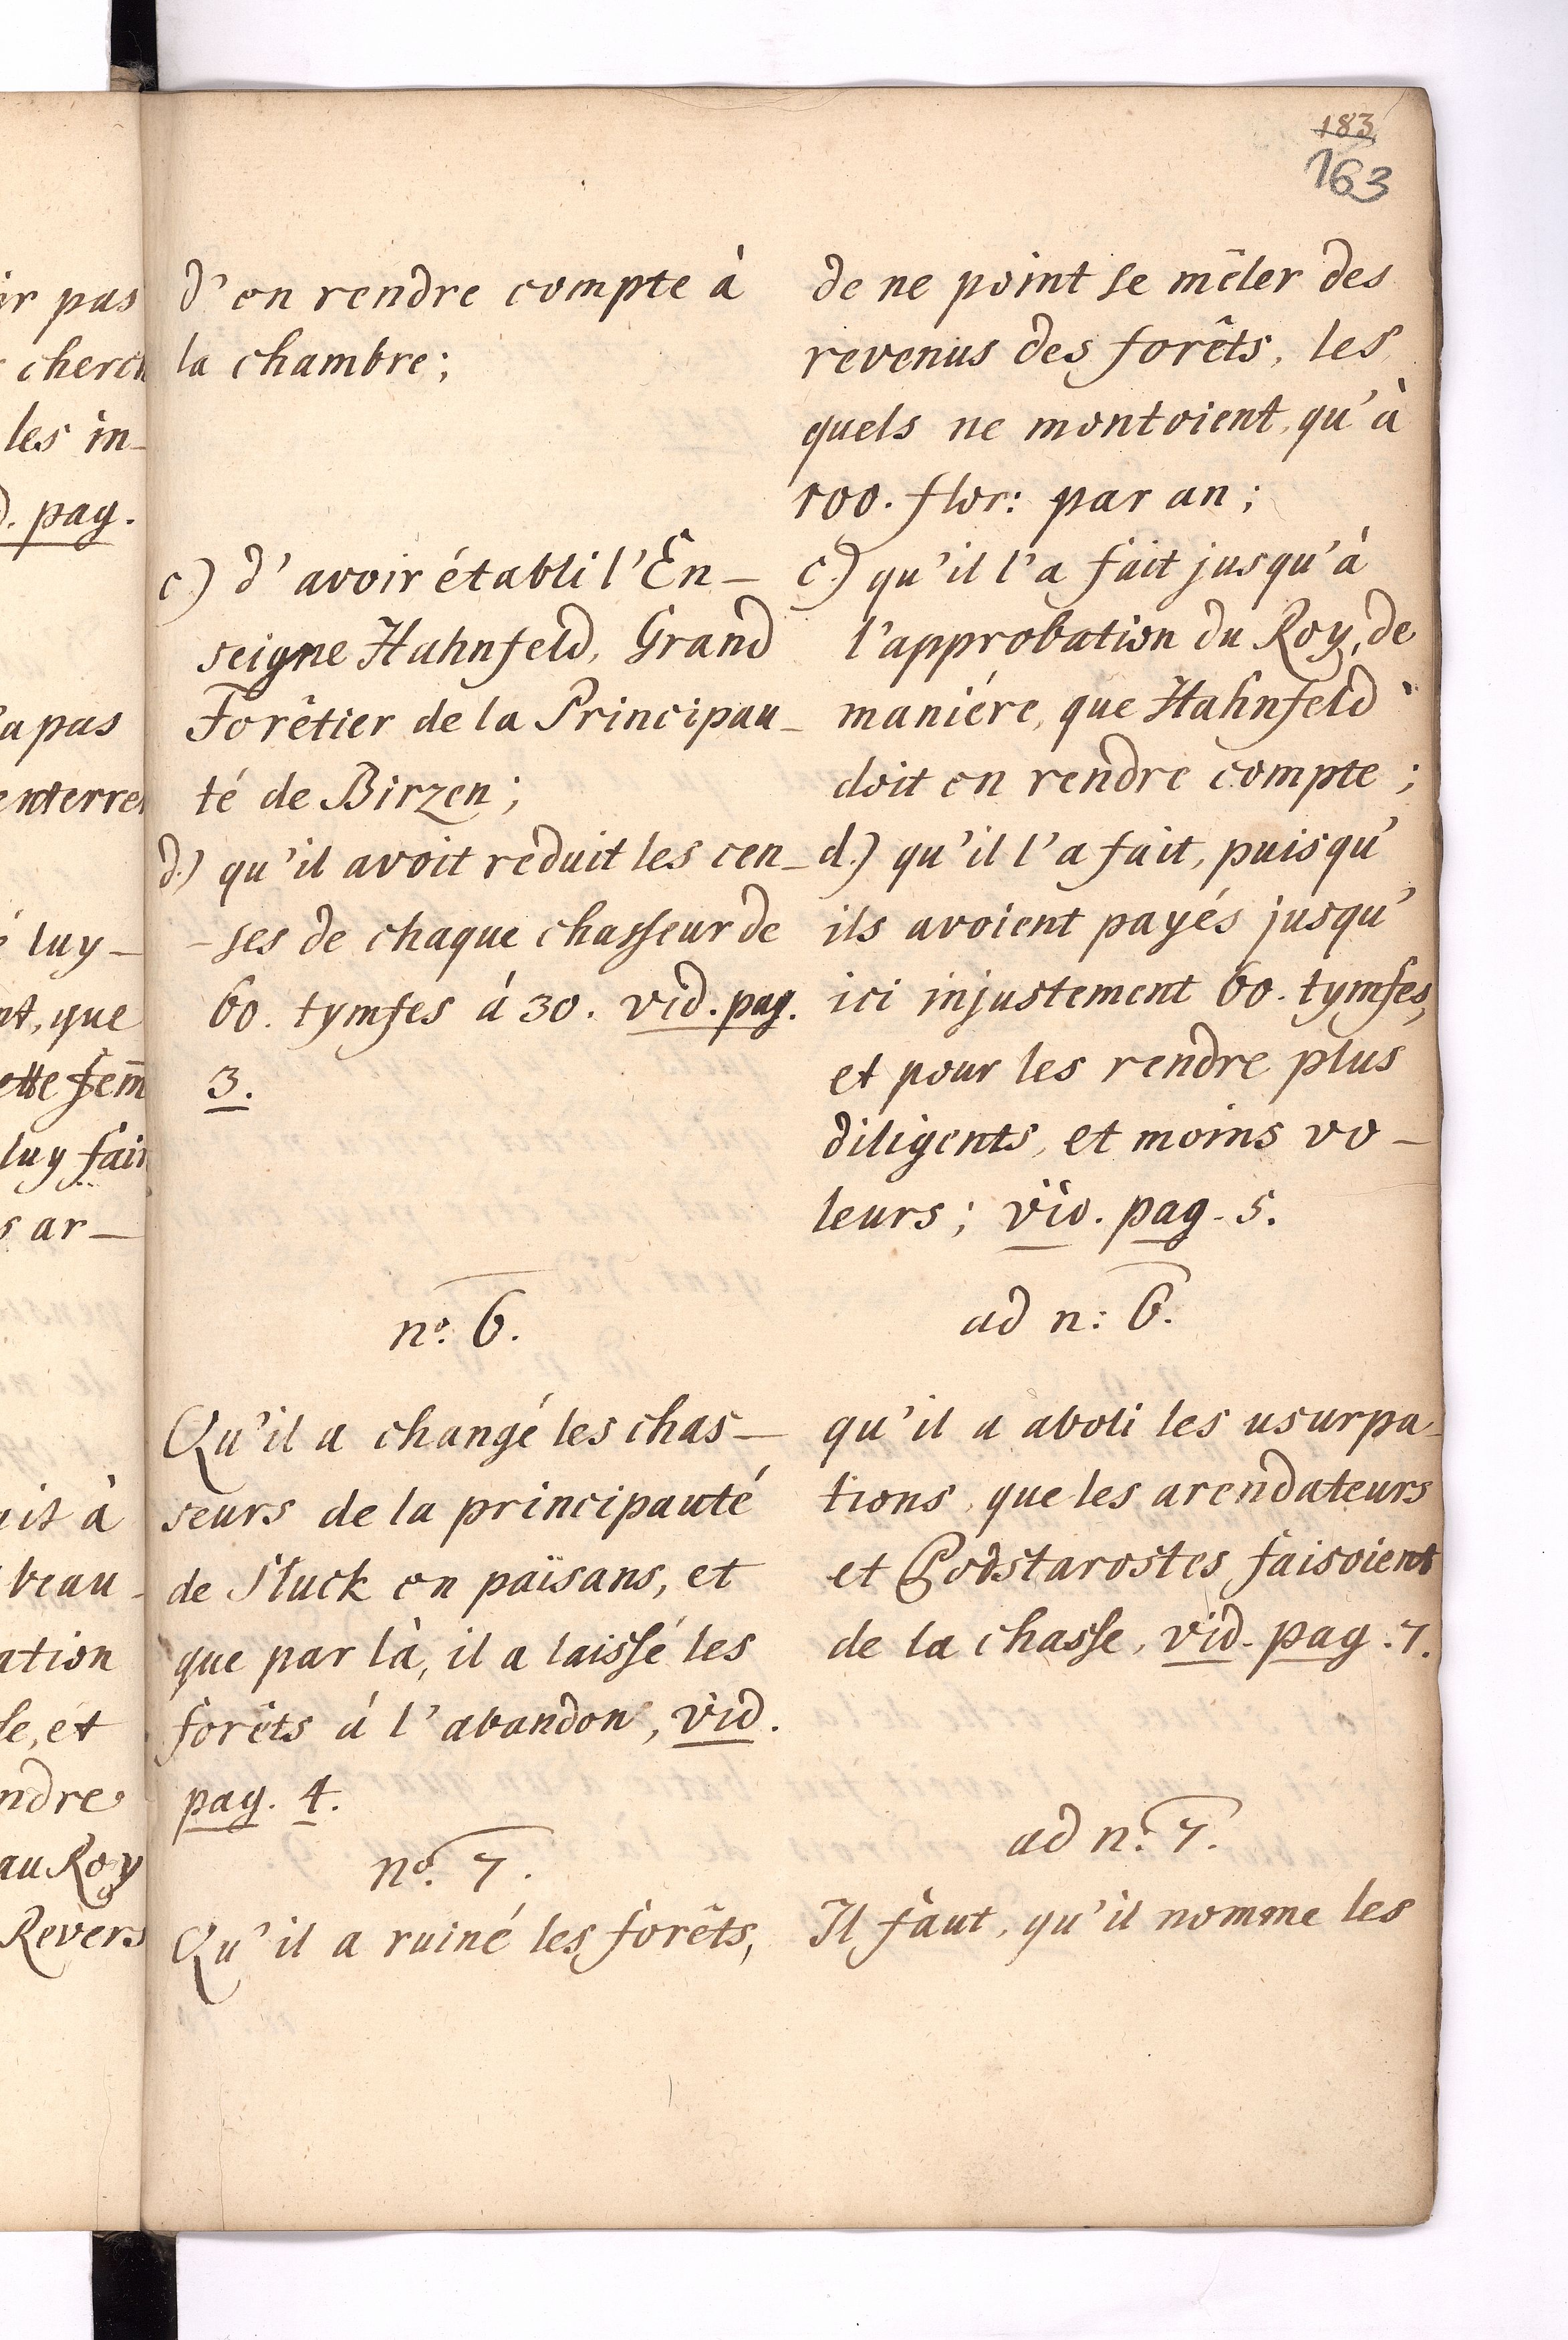 183
163
ir pas
cherch
les in-
pag.
a pas
enterrer
luy-
nt, que
ette fem̄
luy fair
s ar-
it à
beau-
ation
se, et
ndre
au Roy
Revers
d'en rendre compte à
la chambre;
c) d'avoir établi l'En-
seigne Hahnfeld, Grand
Forêtier de la Principau-
té de Birzen;
d.) qu'il avoit reduit les cen-
-ses de chaque chasseur de
60. tymfes á 30. vid. pag.
3.
no. 6.
Qu'il a changé les chas-
seurs de la principauté
de Sluck en païsans, et
que par là, il a laissé les
forêts á l'abandon, vid.
pag. 4.
no. 7.
Qu'il a ruiné les forêts,
de ne point se mêler des
revenus des forêts, les
quels ne montoient, qu'à
100. flor: par an;
c.) qu'il l'a fait jusqu'à
l'approbation du Roy, de
maniére, que Hahnfeld
doit en rendre compte;
d.) qu'il l'a fait, puisqu'
ils avoient payés jusqu'
ici injustement 60. tymfes,
et pour les rendre plus
diligents, et moins vo-
leurs; vid. pag. 5.
ad n: 6.
qu'il a aboli les usurpa-
tions, que les arendateurs
et Podstarostes faisoient
de la chasse, vid. pag. 7.
ad n: 7.
Il faut, qu'il nomme les